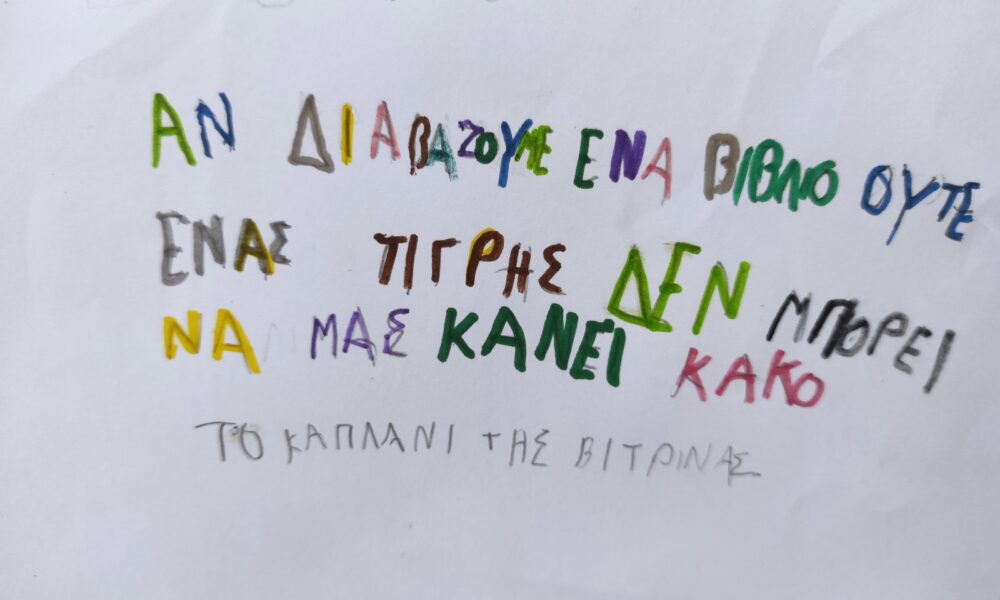 ΑΝ ΔΙΑΒΑΖΟΥΜΕ ΕΝΑ ΒΙΒΛΟ ΟΥΤΕ
ΕΝΑΣ ΤΙΓΡΗΣ ΔΕΝ ΜΠΟΡΕΙ
ΝΑ ΜΑΣ ΚΑΝΕΙ ΚΑΚΟ
ΤΟ ΚΑΠΛΑΝΙ ΤΗΣ ΒΙΤΡΙΝΑΣ